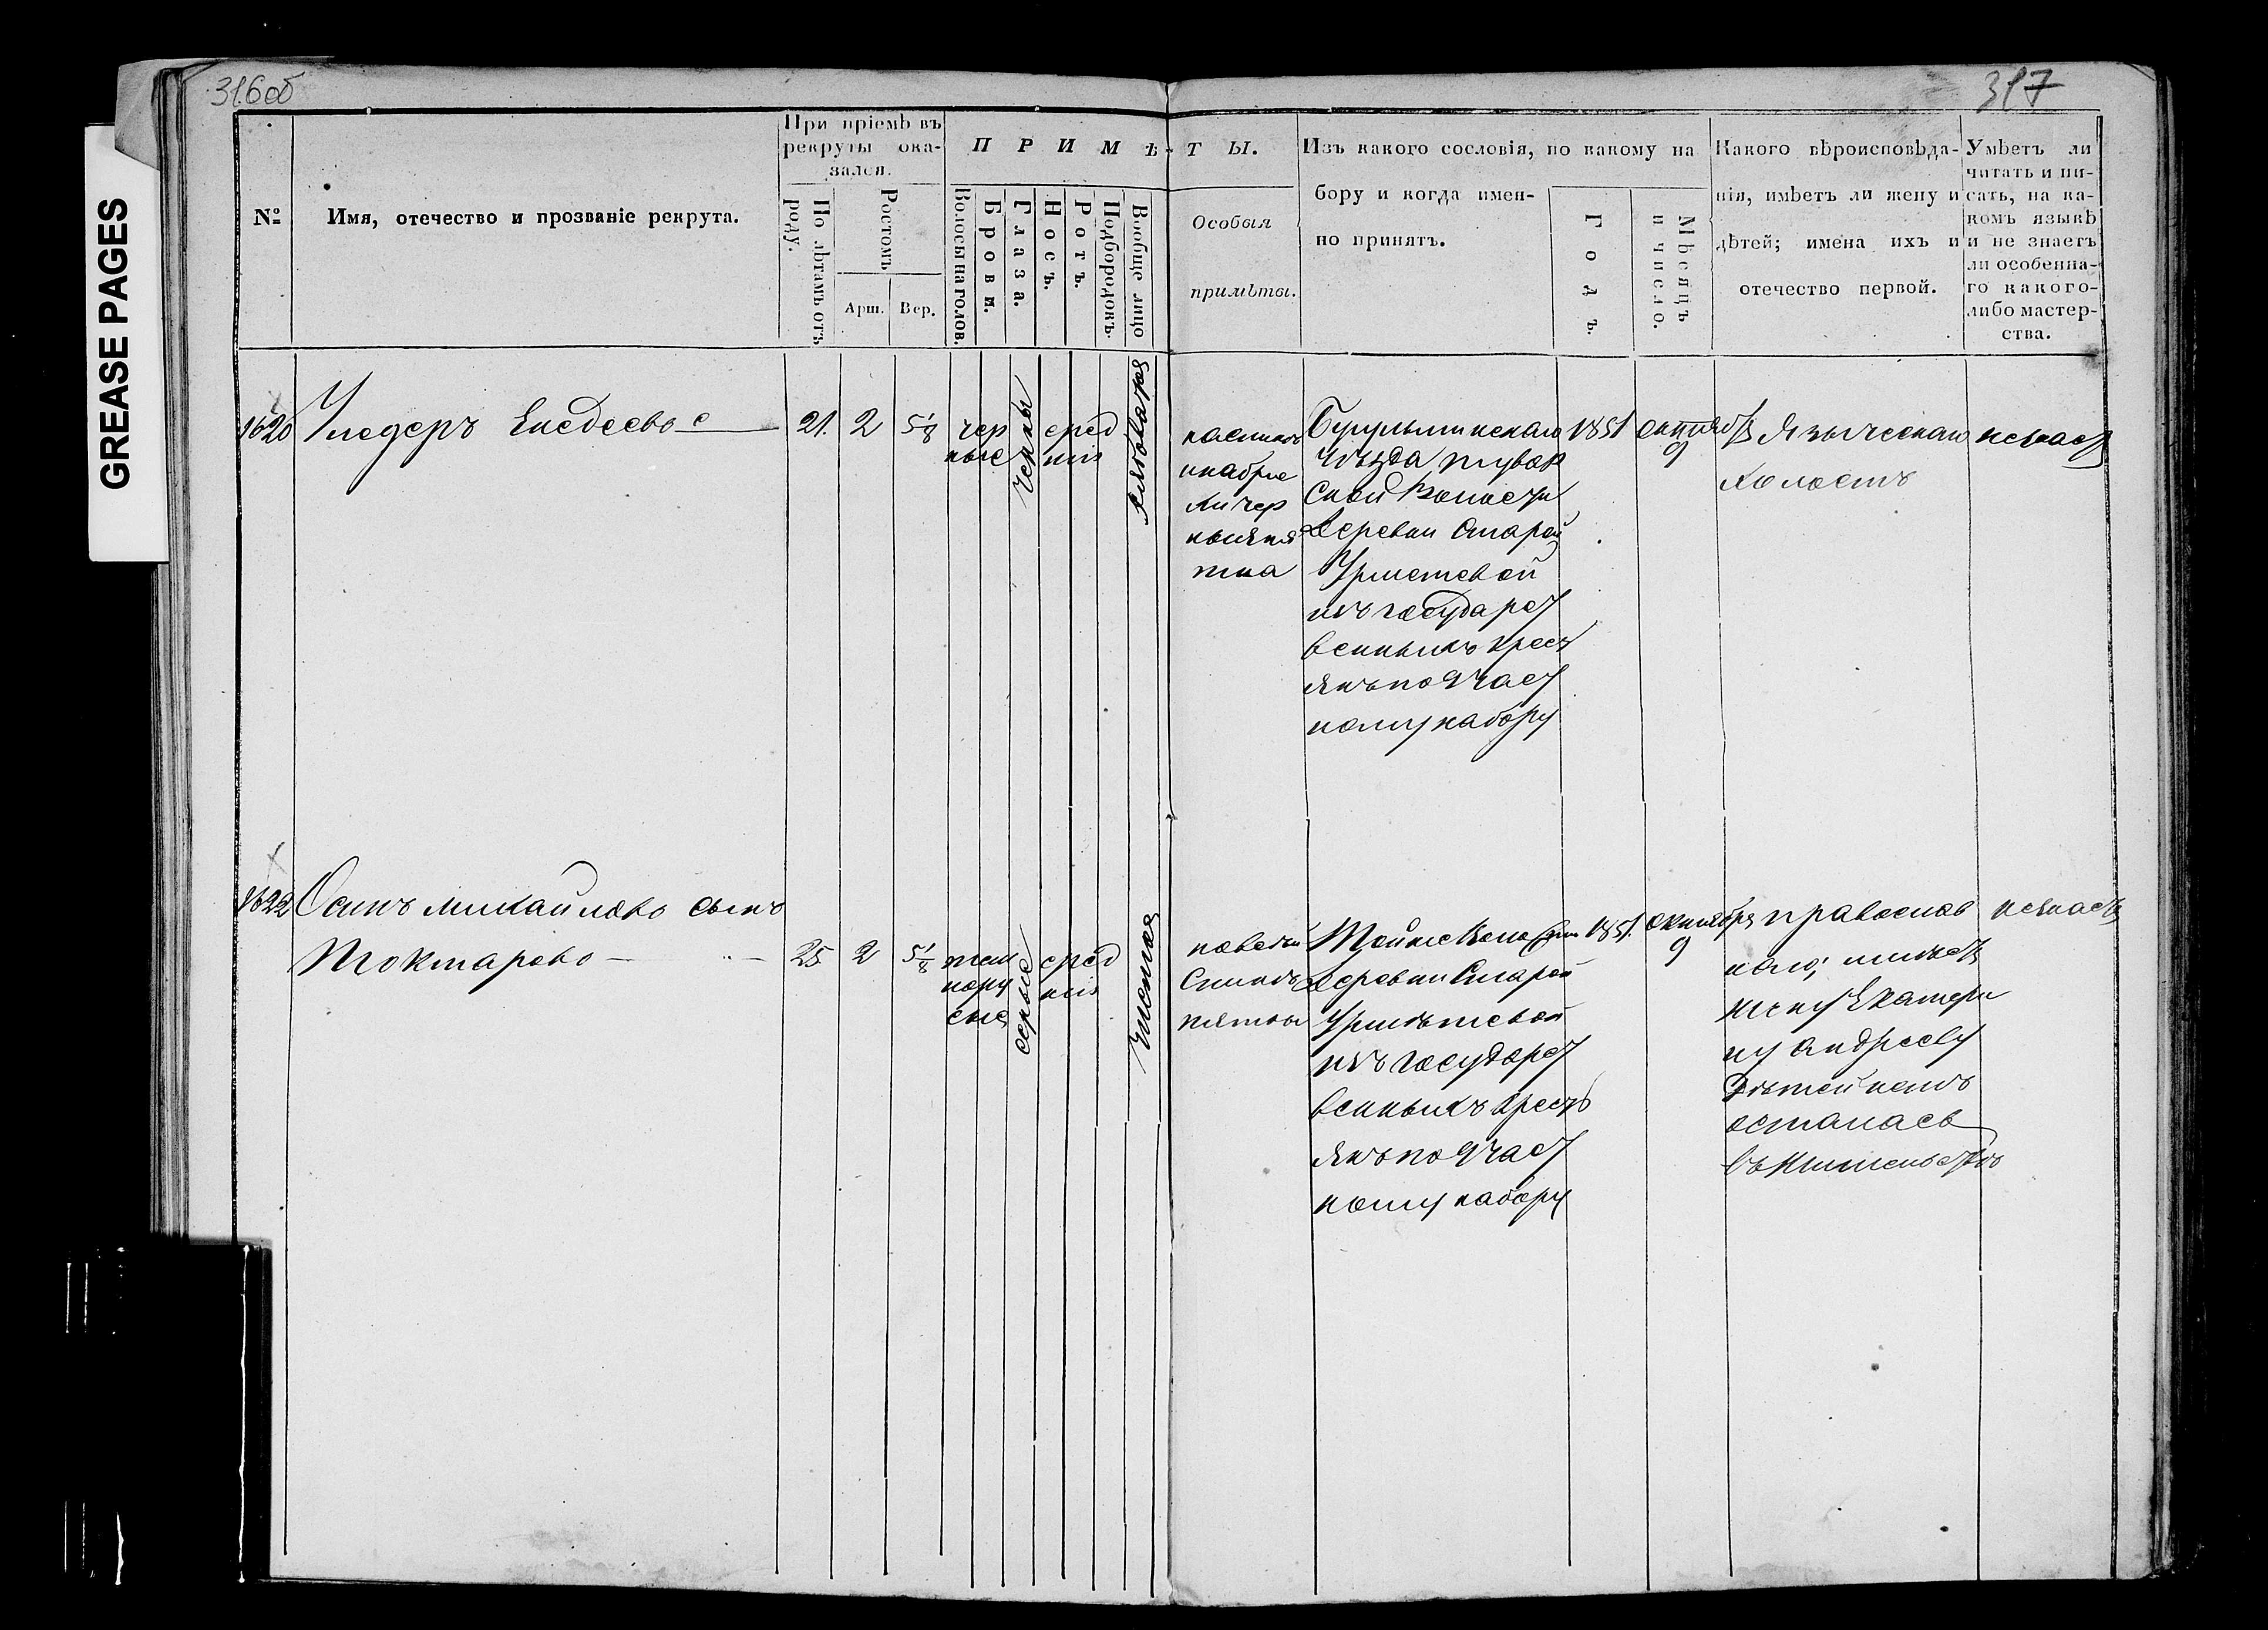 316об
317
GREASE PAGES
№
Имя, отечество и прозваніе рекрута.
При пріемѣ въ
рекруты ока-
зался.
По лѣтамъ отъ
роду.
Ростомъ
Арш. Вер.
ПРИМѢ-ТЫ.
Волосы на голов.
Брови.
Глаза.
Носъ.
Ротъ.
Подбородокъ.
Вообще лицо
Особыя
примѣты.
Изъ какого сословія, по какому на
бору и когда имен-
но принятъ.
Годъ.
Мѣсяцъ
и число.
Какого вѣроисповѣда-
нія, имѣетъ ли жену и
дѣтей; имена ихъ и
отечество первой.
Умѣетъ ли
читать и пи-
сать, на ка-
комъ языкѣ
и не знаетъ
ли особенна-
го какого-
либо мастер-
ства.
1620
21. 2 5 1/8
чер
ные
черны
сред
нія
Бугульминскаго
уѣзда
ской Волости
Деревни Старой
Урметевой
изъ государст
венныхъ крест
янъ по 9 част
ному набору
1851
октяб
9
Языческаго
холостъ
1622
Осипъ Михайловъ сынъ
Токтаровъ —
25 2 5 1/8
тем
нору
сые
серые
сред
нія
чистая
пятны
Волости
Деревни Старой
Урметевой
изъ государст
венныхъ крестъ
янъ по 9 част
ному набору
1851.
октября
9
православ
наго; имѣетъ
жену Екатери
ну Андрееву
Дѣтей нетъ
осталась
въ жительствѣ